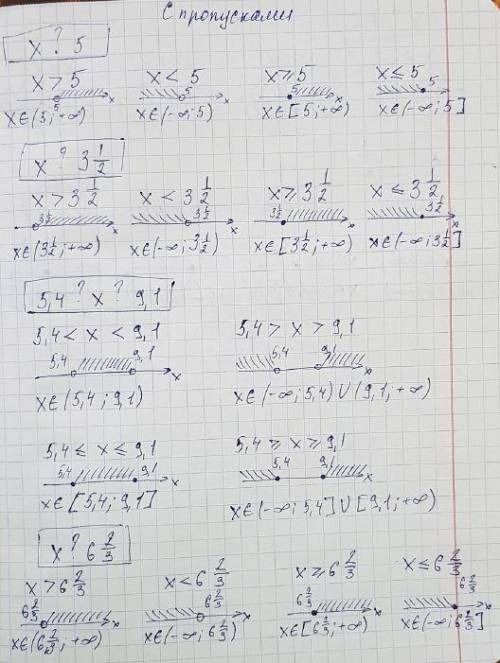 С пропусками
x ? 5
x > 5 x < 5 x ⩾ 5 x ≤ 5
5 x 5 x 5 x 5 x
x∈(3; +∞) x∈(-∞; 5) x∈[5; +∞) x∈(-∞; 5]
x ? 3 1/2
x > 3 1/2 x < 3 1/2 x ⩾ 3 1/2 x ≤ 3 1/2
3 1/2 x 3 1/2 x 3 1/2 x 3 1/2 x
x∈(3 1/2; +∞) x∈(-∞; 3 1/2) x∈[3 1/2; +∞) x∈(-∞; 3 1/2]
5,4 ? x ? 9,1
5,4 < x < 9,1 5,4 > x > 9,1
5,4 9,1 x 5,4 9,1 x
x∈(5,4; 9,1) x∈(-∞; 5,4) U (9,1; +∞)
5,4 ≤ x ≤ 9,1 5,4 ⩾ x ⩾ 9,1
5,4 9,1 x 5,4 9,1 x
x∈[5,4; 9,1] x∈(-∞; 5,4] U [9,1; +∞)
x ? 6 2/3
x > 6 2/3 x < 6 2/3 x ⩾ 6 2/3 x ≤ 6 2/3
6 2/3 x 6 2/3 x 6 2/3 x 6 2/3 x
x∈(6 2/3; +∞) x∈(-∞; 6 2/3) x∈[6 2/3; +∞) x∈(-∞; 6 2/3]